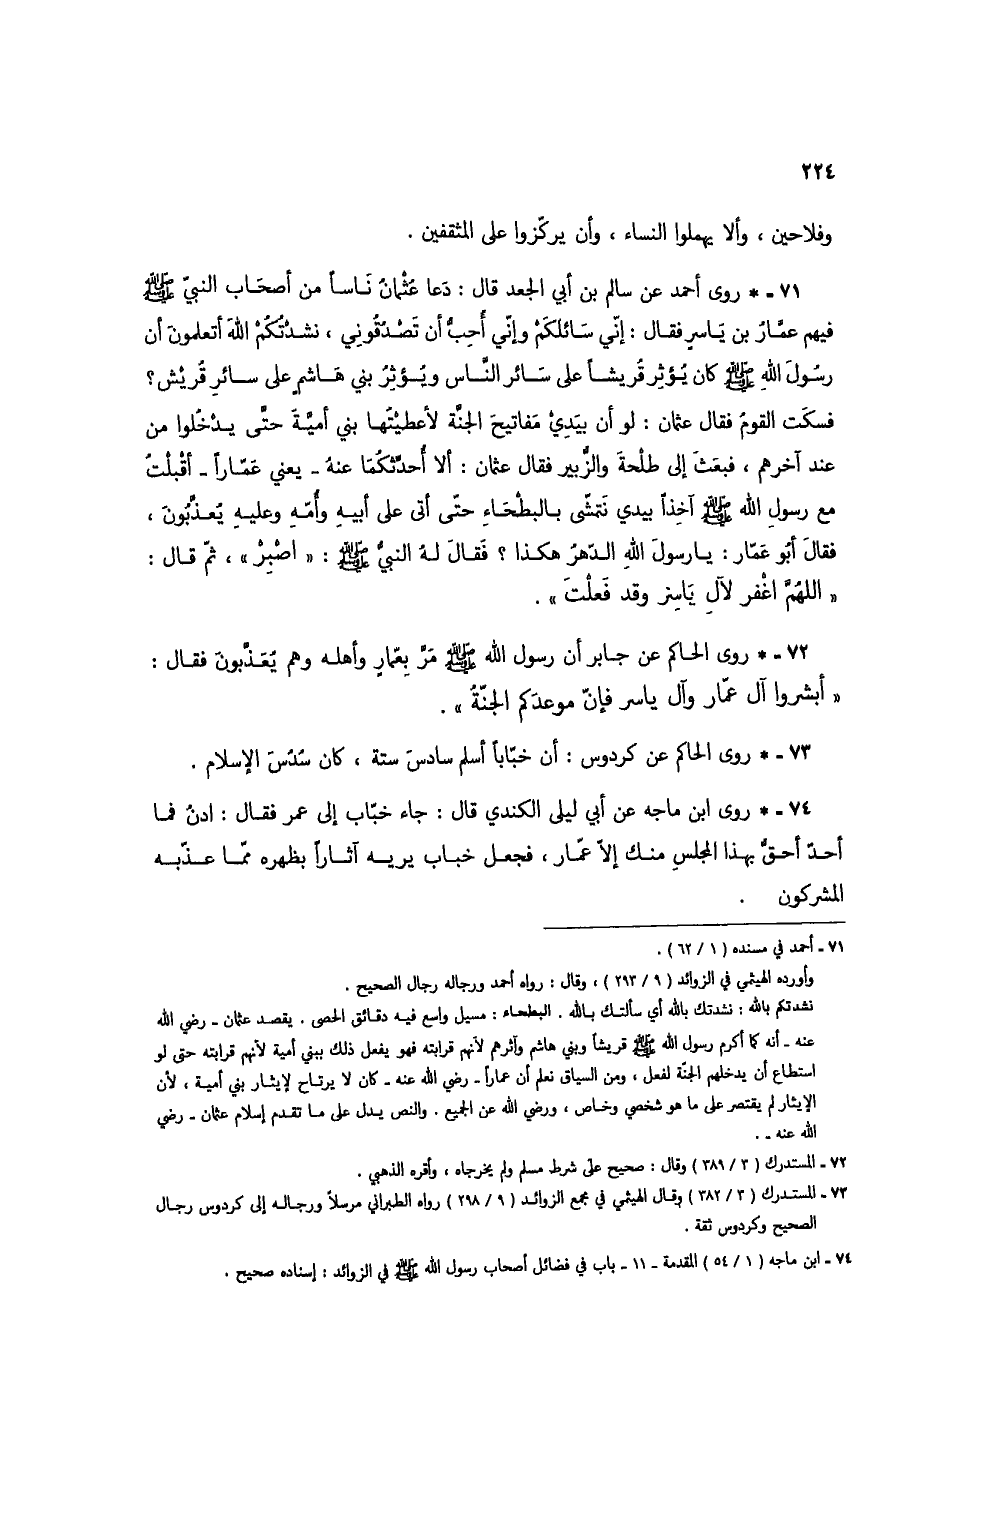 ٢٢٤
وفلاحين ، وألا يهملوا النساء ، وأن يركّزوا على المثقفين .
٧١ - * روى أحمد عن سالم بن أبي الجعد قال : دَعا عَثْمانُ نَاساً من أصحَاب النبيّ ﷺ
فيهم عمَّارُ بن يَاسرٍ فقال : إنّي سَائلكَمْ وإنّي أُحِبُّ أن تَصْدُقُوني ، نشدتُكُمْ اللهَ أتعلمونَ أن
رسُولَ اللهِ ﷺ كان يُؤثِر قُريشاً على سَائر النَّاس ويُؤثِرُ بني هَاشمٍ على سائرِ قُريْش؟
فسكَت القومُ فقال عثمان : لو أن بيَدِيْ مَفاتيحَ الجنَّة لأعطيْتُها بني أميَّةَ حتَّى يدْخُلوا من
عند آخرهم ، فبعَثَ إلى طلْحةَ والزُّبير فقال عثمان : ألا أُحدِّثكُمَا عنهُ - يعني عَمّاراً - أقْبلْتُ
مع رسولِ الله ﷺ آخِذاً بيدي نَتمشّى بالبطْحَاءِ حتّى أتى على أبيهِ وأُمّهِ وعليهِ يُعذَّبُونَ ،
فقالَ أبُو عَمّار : يارسولَ اللهِ الدّهرُ هكذا ؟ فَقالَ لهُ النبيُّ ﷺ : « اصْبِرْ » ، ثمّ قال :
« اللهُمَّ اغْفر لآلِ يَاسِرٍ وقد فَعلْتَ » .
٧٢ - * روى الحاكم عن جابر أن رسول الله ﷺ مَرَّ بِعمّارٍ وأهله وهم يُعَذَّبونَ فقال :
« أبشروا آل عمّار وآل ياسر فإنّ موعدَكم الجنّةُ » .
٧٣ - * روى الحاكم عن كردوس : أن خبّاباً أسلم سادسَ ستة ، كان سُدُسَ الإسلام .
٧٤ - * روى ابن ماجه عن أبي ليلى الكندي قال : جاء خبّاب إلى عمر فقال : ادنُ فما
أحدٌ أحقُّ بهذا المجلسِ منك إلاّ عمّار ، فجعل خباب يريه آثاراً بظهره ممّا عذّبه
المشركون .
٧١ - أحمد في مسنده ( ١ / ٦٢ ) .
وأورده الهيثمي في الزوائد ( ٩ / ٢٩٣ ) ، وقال : رواه أحمد ورجاله رجال الصحيح .
نشدتكم بالله : نشدتك بالله أي سألتك بالله . البطحاء : مسيل واسع فيه دقائق الحصى . يقصد عثمان - رضي الله
عنه - أنه كما أكرم رسول الله ﷺ قريشاً وبني هاشم وآثرهم لأنهم قرابته فهو يفعل ذلك ببني أمية لأنهم قرابته حتى لو
استطاع أن يدخلهم الجنّة لفعل ، ومن السياق نعلم أن عماراً - رضي الله عنه - كان لا يرتاح لإيثار بني أمية ، لأن
الإيثار لم يقتصر على ما هو شخصي وخاص ، ورضي الله عن الجميع . والنص يدل على ما تقدم إسلام عثمان - رضي
الله عنه - .
٧٢ - المستدرك ( ٣ / ٣٨٩ ) وقال : صحيح على شرط مسلم ولم يخرجاه ، وأقره الذهبي .
٧٣ - المستدرك ( ٣ / ٣٨٢ ) وقال الهيثمي في مجمع الزوائد ( ٩ / ٢٩٨ ) رواه الطبراني مرسلاً ورجاله إلى كردوس رجال
الصحيح وكردوس ثقة .
٧٤ - ابن ماجه ( ١ / ٥٤ ) المقدمة - ١١ - باب في فضائل أصحاب رسول الله ﷺ في الزوائد : إسناده صحيح .